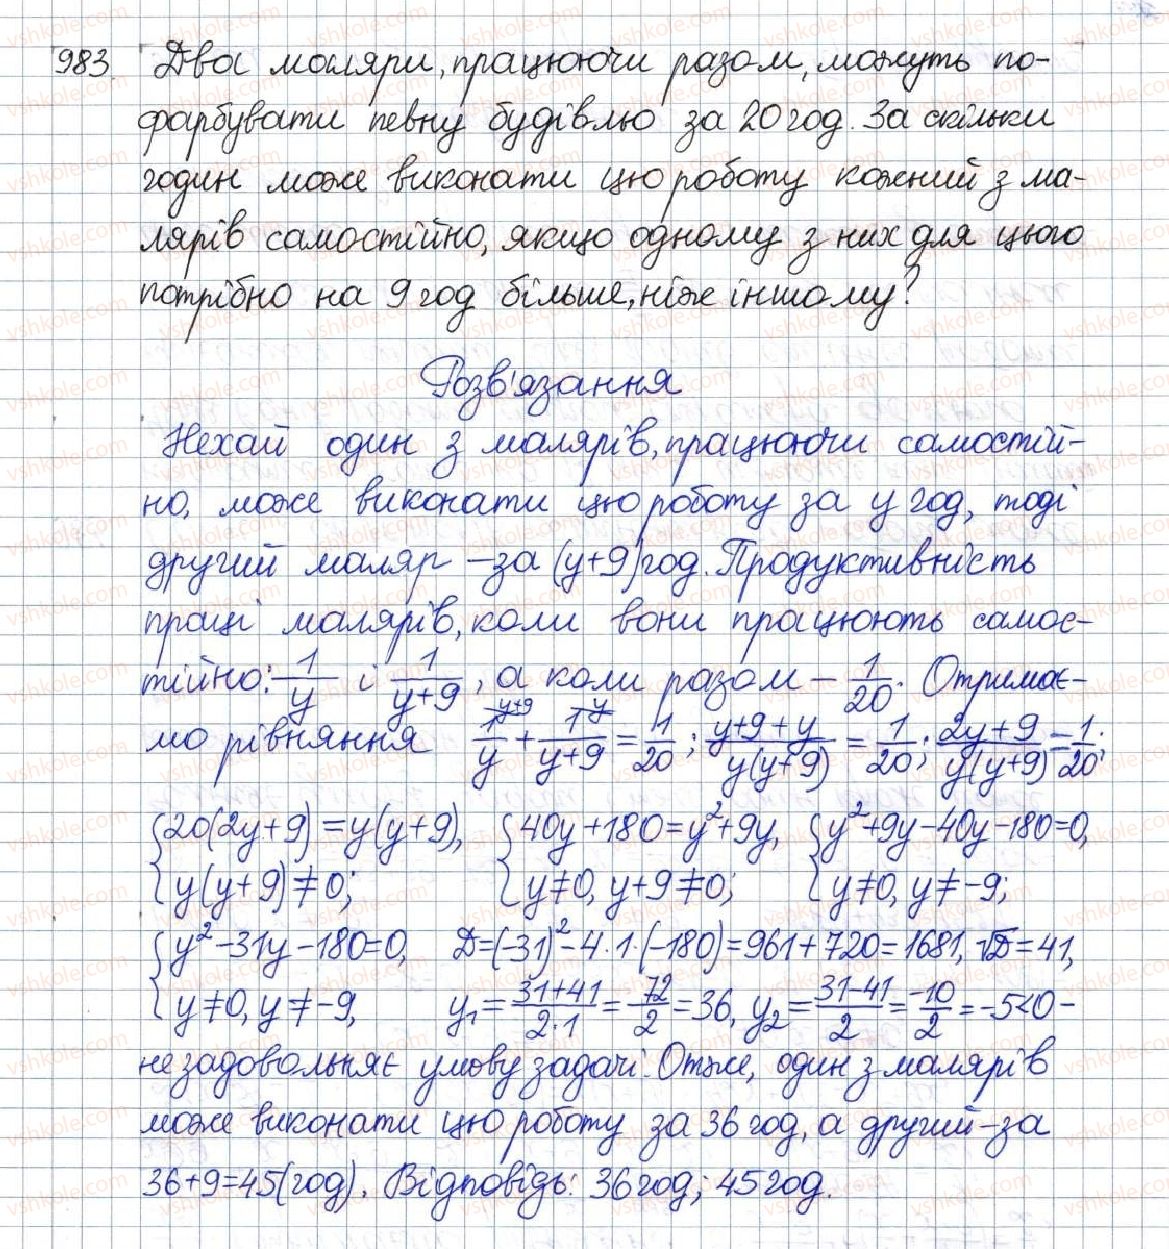 983 Два маляри, працюючи разом, можуть по-
фарбувати певну будівлю за 20 год. За скільки
годин може виконати цю роботу кожний з ма-
лярів самостійно, якщо одному з них для цього
потрібно на 9 год більше, ніж іншому?
Розв'язання
Нехай один з малярів, працюючи самостій-
но, може виконати цю роботу за y год, тоді
другий маляр – за (y+9) год. Продуктивність
праці малярів, коли вони працюють самос-
тійно: 1/y і 1/(y+9), а коли разом – 1/20. Отримає-
мо рівняння 1/y + 1/(y+9) = 1/20; (y+9+y)/(y(y+9)) = 1/20; (2y+9)/(y(y+9)) = 1/20;
{20(2y+9)=y(y+9), {40y+180=y²+9y, {y²+9y-40y-180=0,
{y(y+9)≠0; {y≠0, y+9≠0; {y≠0, y≠-9;
{y²-31y-180=0, D=(-31)²-4·1·(-180)=961+720=1681, √D=41,
{y≠0, y≠-9, y₁=(31+41)/(2·1)=72/2=36, y₂=(31-41)/2=-10/2=-5<0 –
не задовольняє умову задачі. Отже, один з малярів
може виконати цю роботу за 36 год, а другий – за
36+9=45(год). Відповідь: 36 год; 45 год.
vshkole.com